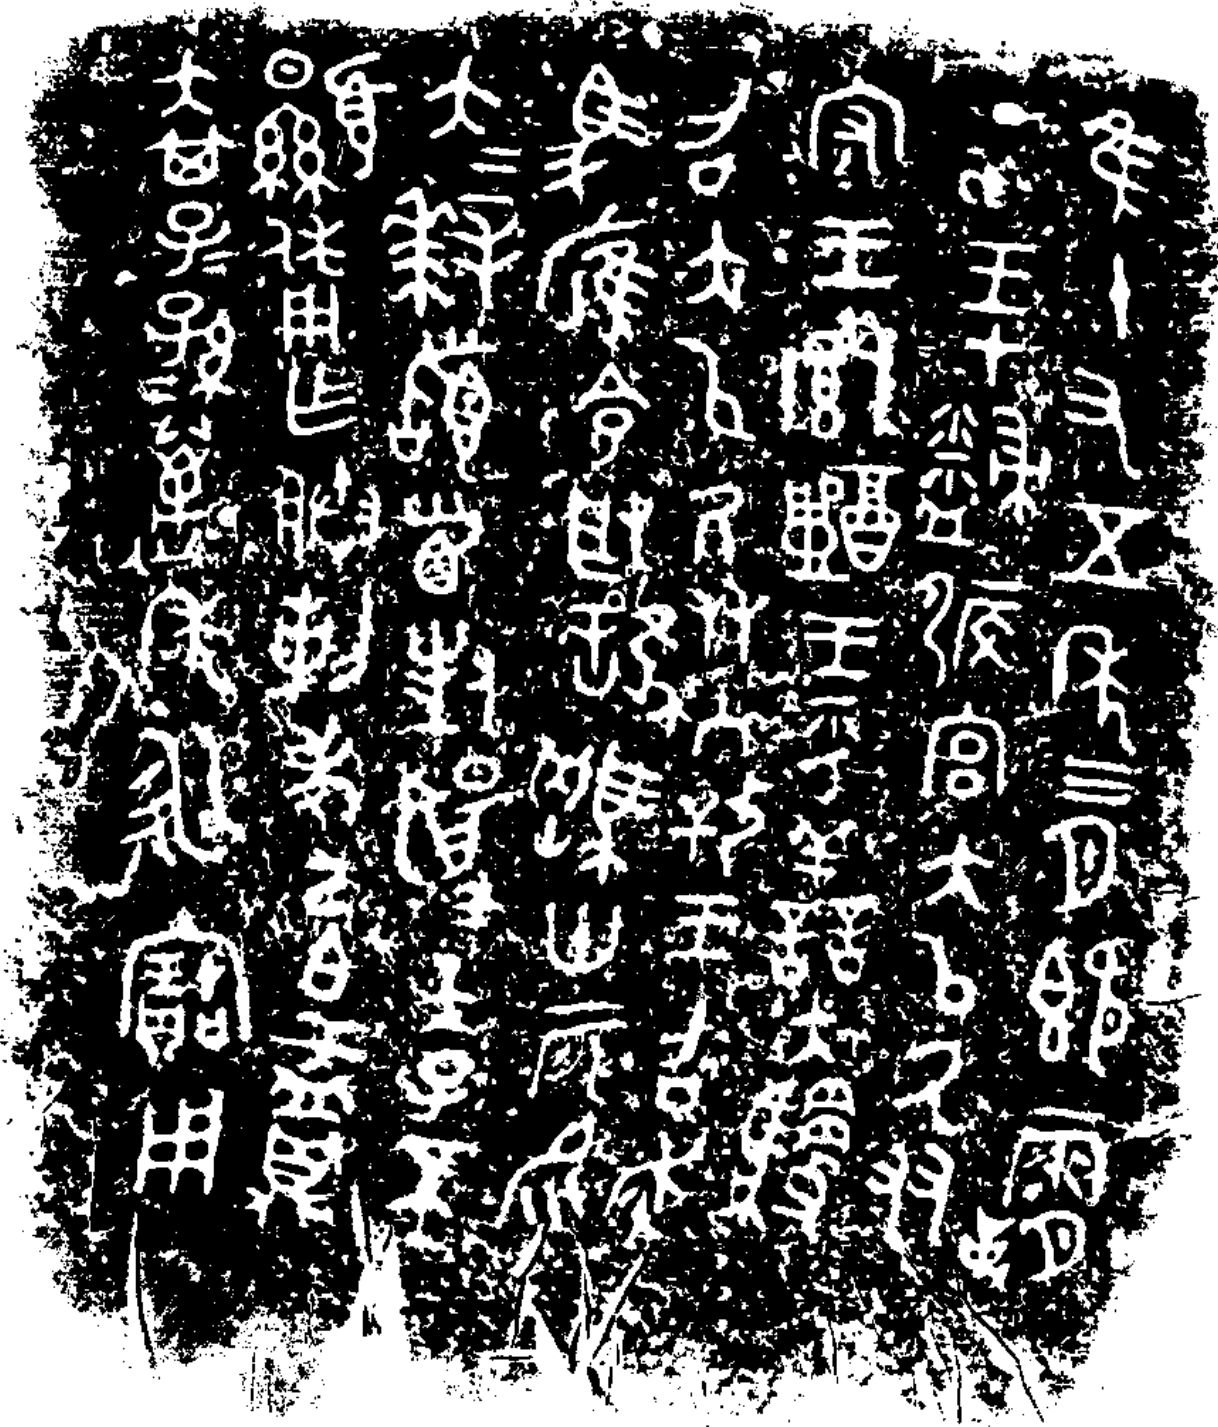 隹十又五年三月既霸丁
亥王才䣙侲宮大以厥友
守王鄉醴王乎善夫騣
召大以厥友入攼王召走
馬雁令取誰䮷卅二匹易
大大拜稽首對揚王天子不
顯休用乍朕剌考己白盂鼎
大其子子孫孫萬年永寶用